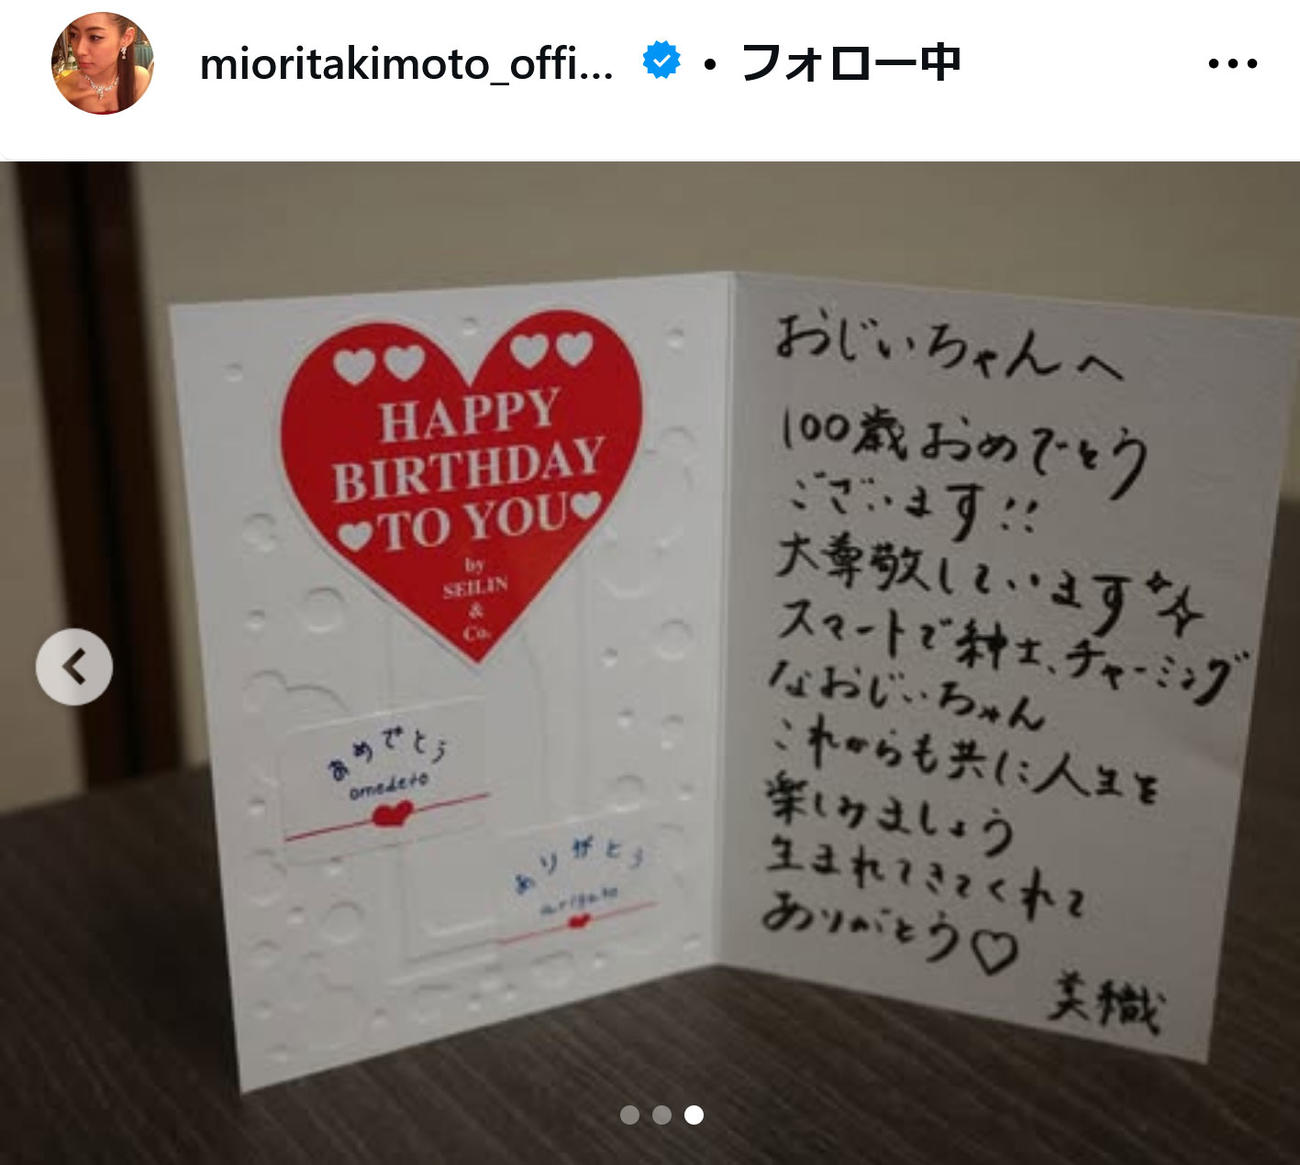 mioritakimoto_offi... • フォロー中
HAPPY
BIRTHDAY
TO YOU
by
SEILIN
&
Co.
おめでとう
omedeto
ありがとう
arigato
おじぃちゃんへ
100歳おめでとう
ございます!!
大尊敬しています
スマートで紳士、チャーミング
なおじぃちゃん
これからも共に人生を
楽しみましょう
生まれてきてくれて
ありがとう♡
美織